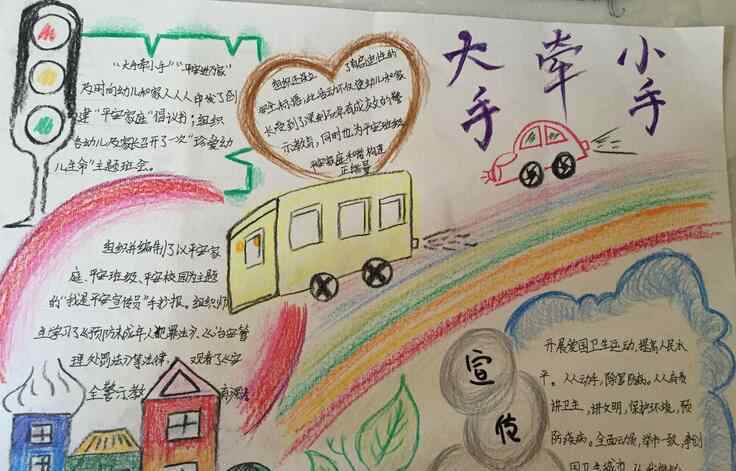 大手牵小手
"大手牵小手""平安进万家"
为时向幼儿和家人人人中发了创
建"平安家庭"倡议书；组织
各幼儿及家长召开了一次"珍爱幼
儿生命"主题班会。
组织还设立 了有启迪性的
安全标语，此活动不仅使幼儿和家
长受到了深刻而卓有成效的警
示教育，同时也为平安班级
平安家庭和谐构建
正能量
组织并编制了以平安家
庭、平安班级、平安校园为主题
的"我是平安宣传员"手抄报。组织师
生学习了《预防未成年人犯罪法》、《治安管
理处罚法》等法律， 观看了《安
全警示教
宣
传
开展爱国卫生运动，提高人民水
平。人人动手，除害防病。人人
讲卫生，讲文明，保护环境，预
防疾病。全面动员，举市一致，争创
国卫生城市